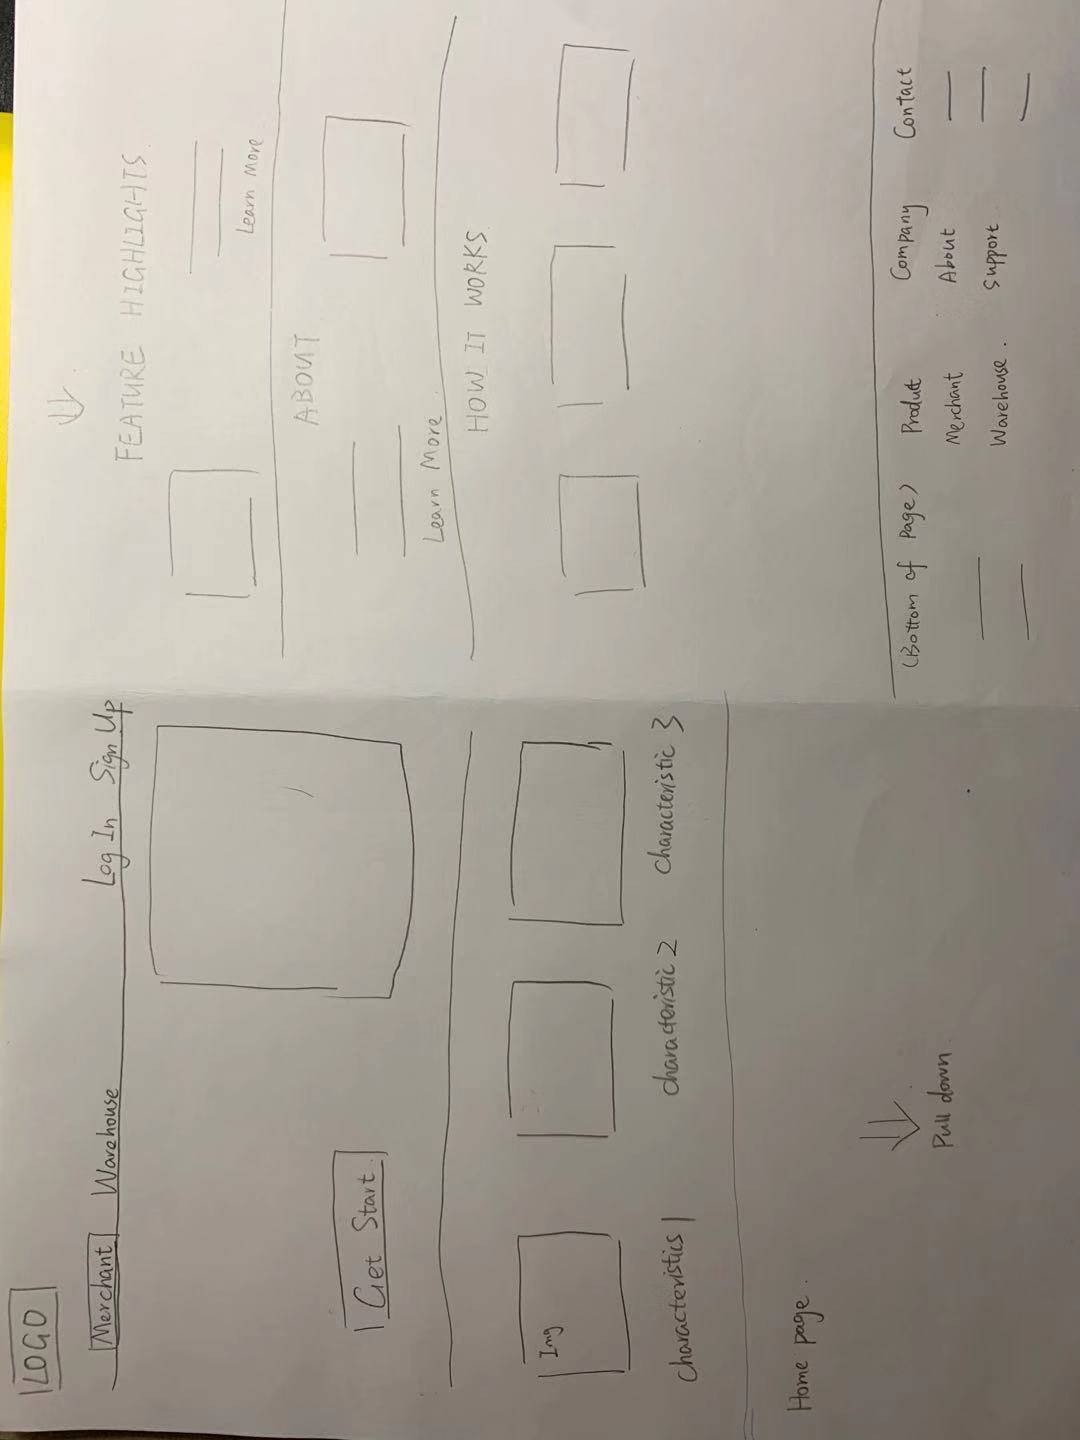 LOGO
Merchant Warehouse Log In Sign Up
Get Start
Img
characteristics 1 characteristic 2 characteristic 3
Home page.
Pull down.
FEATURE HIGHLIGHTS
Learn More
ABOUT
Learn More
HOW IT WORKS
(Bottom of Page) Product Company Contact
Merchant About
Warehouse. Support